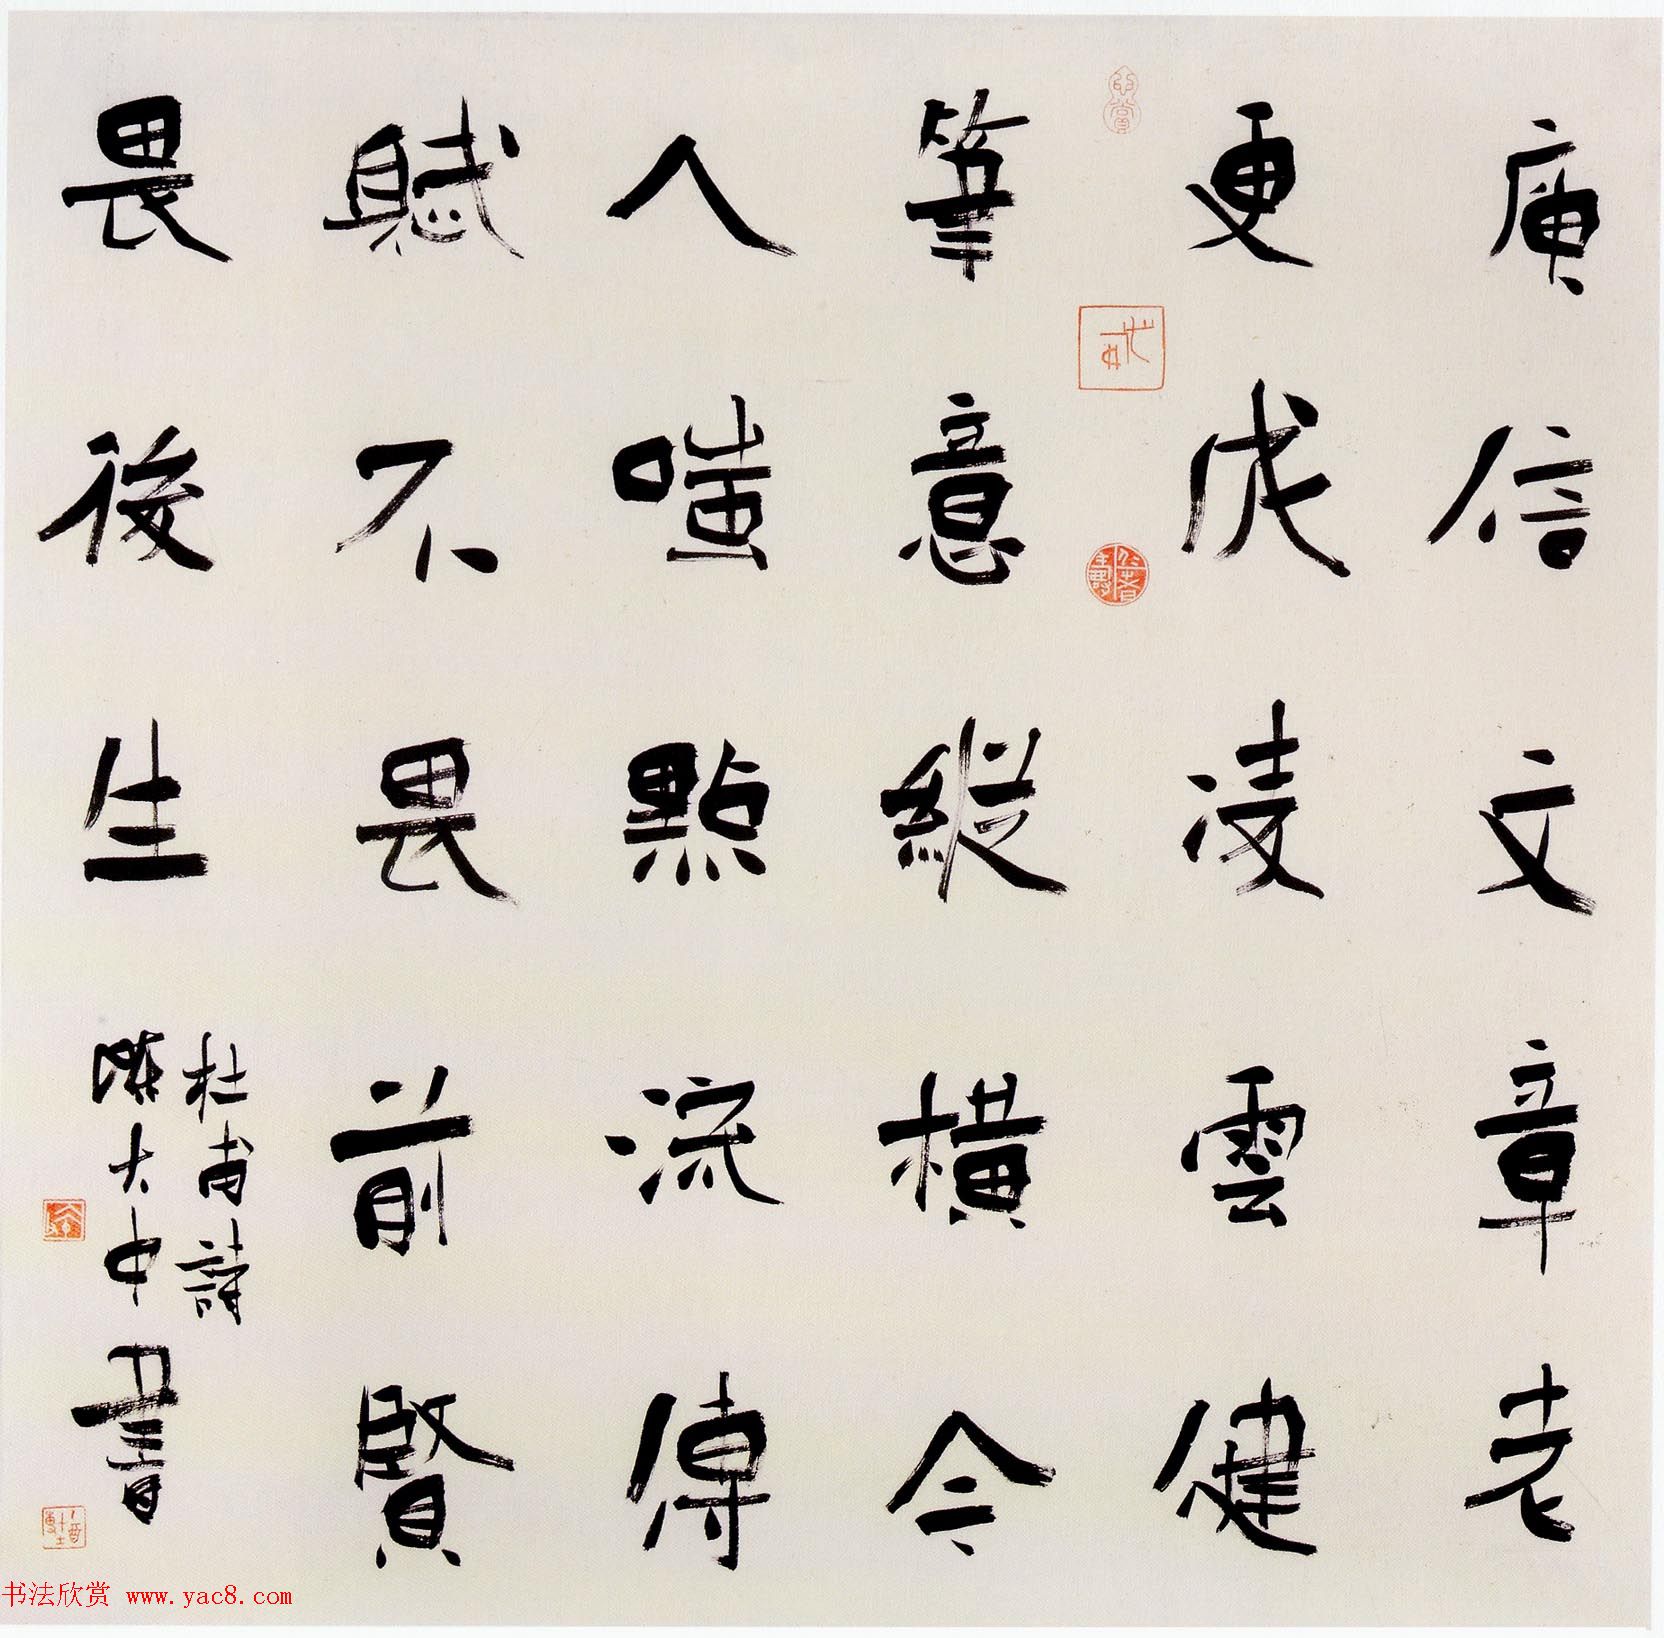 庾信文章老
更成凌雲健
筆意縱橫今
人嗤點流傳
賦不畏前賢
畏後生
杜甫詩
陳大中書
书法欣赏 www.yac8.com